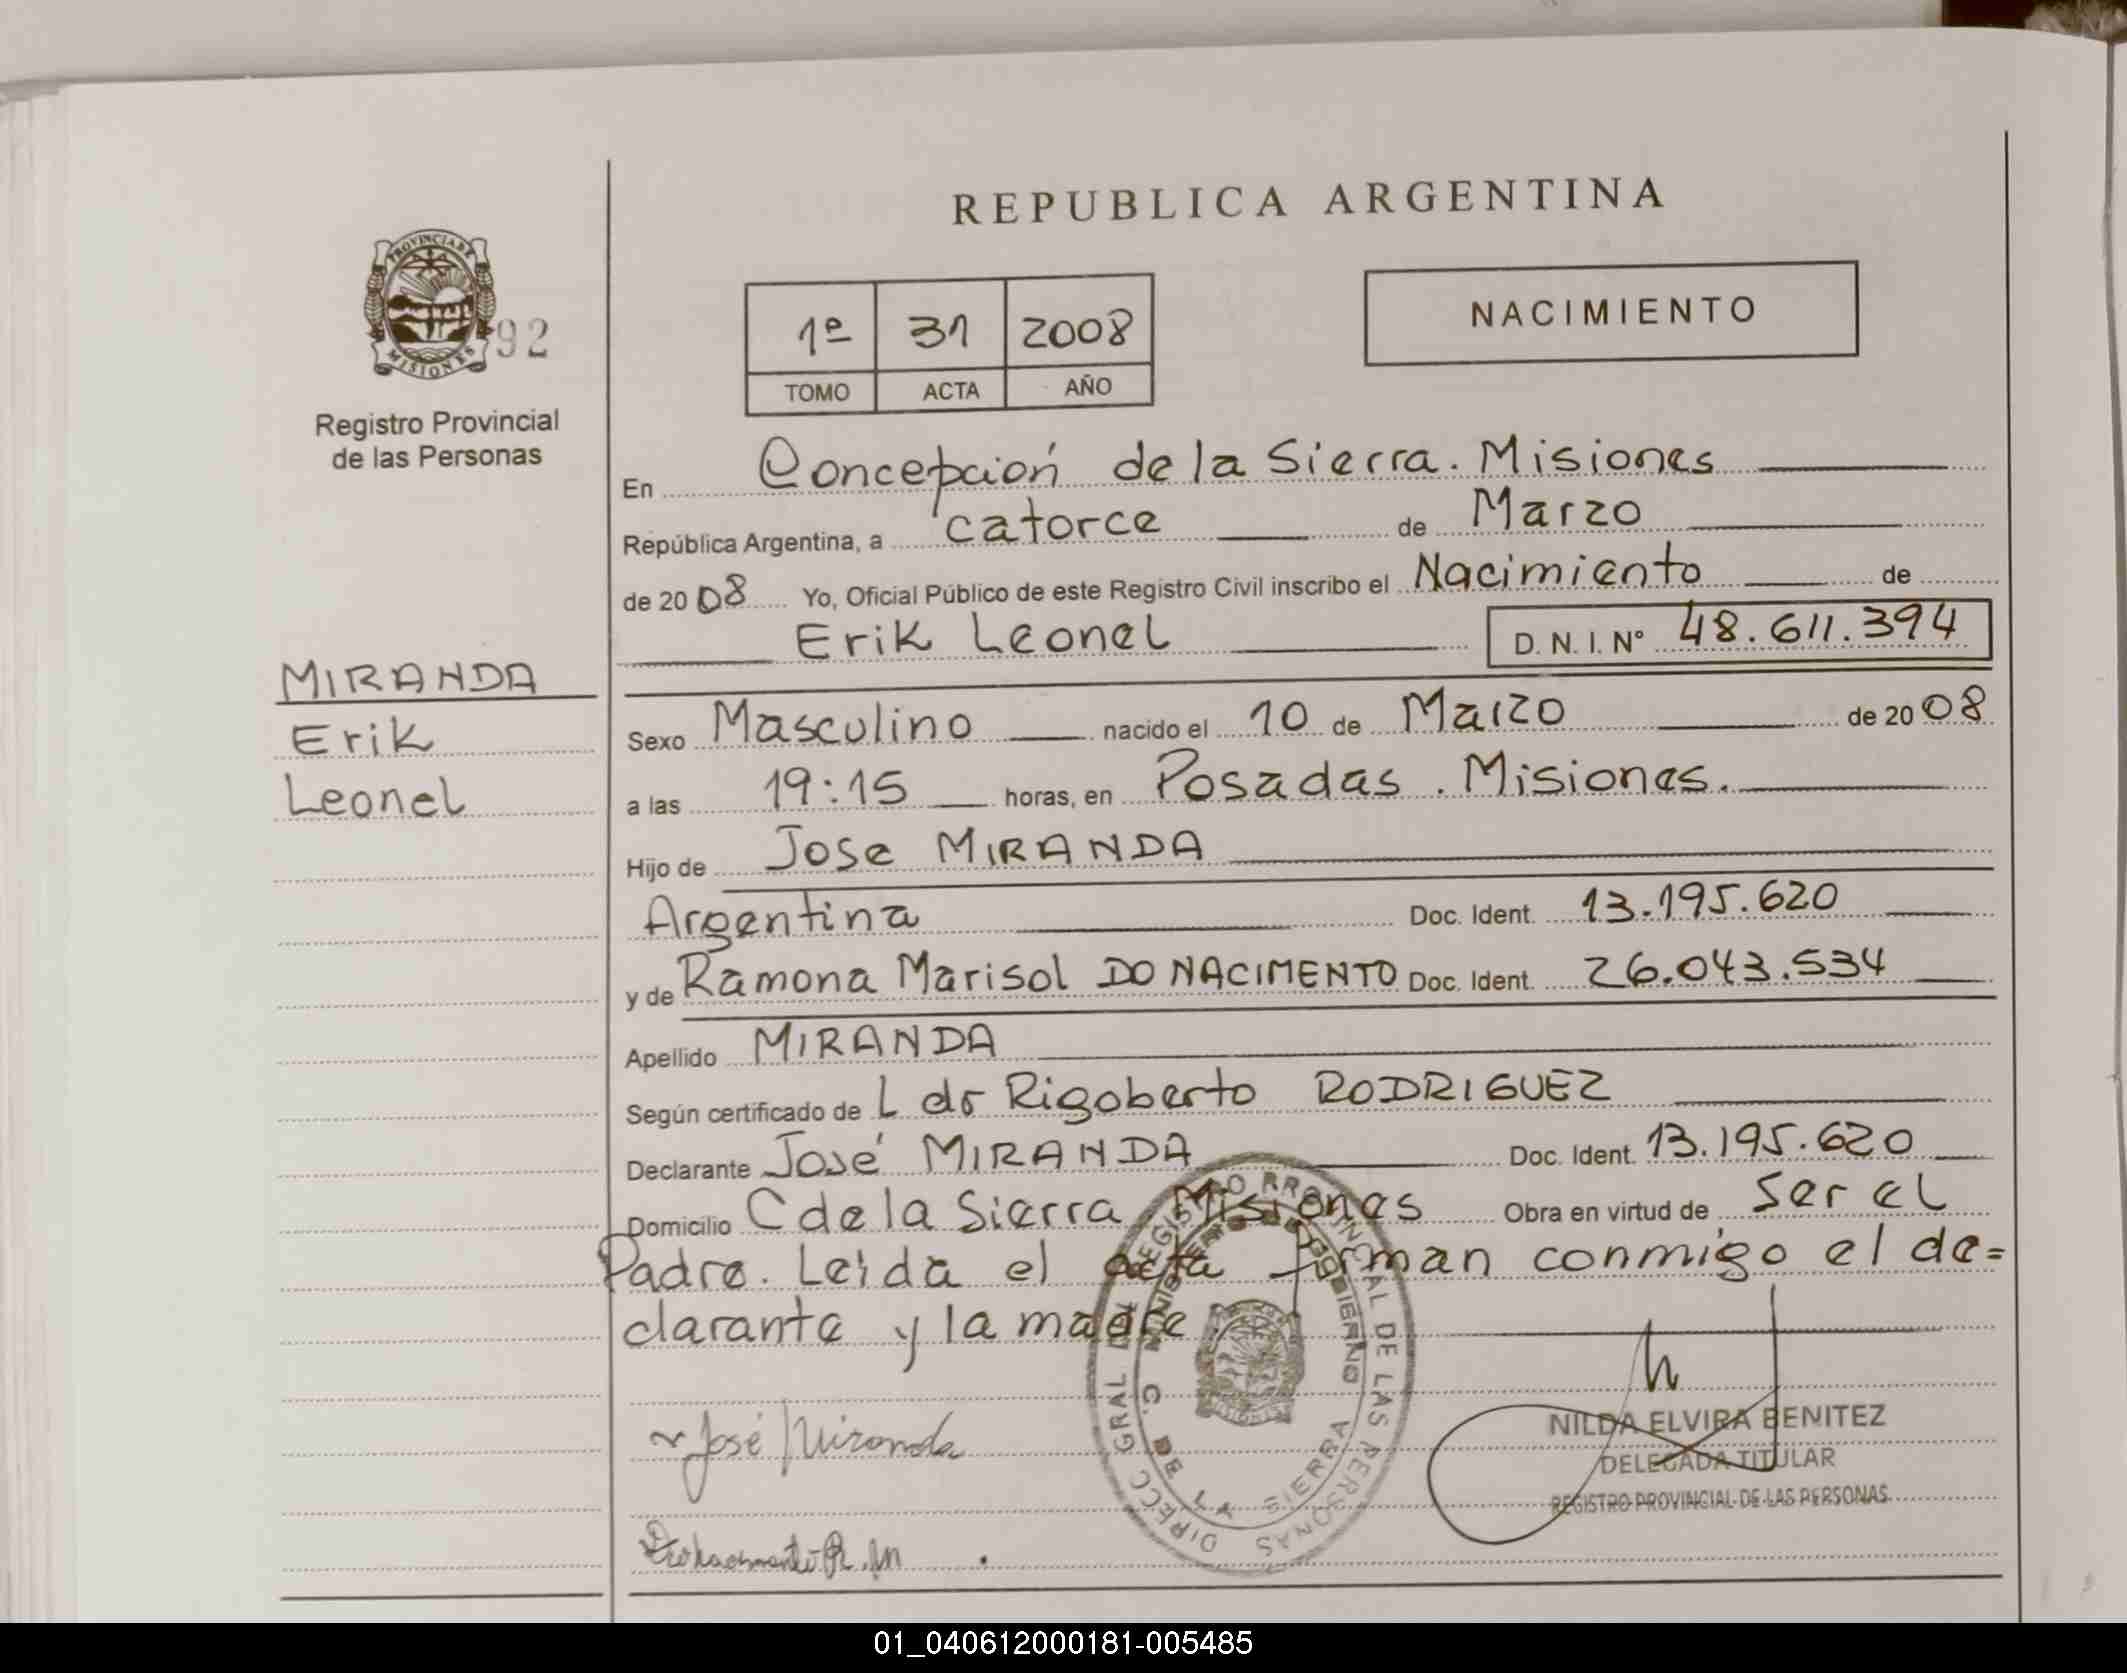 REPUBLICA ARGENTINA
PROVINCIA DE
MISIONES
92
Registro Provincial
de las Personas
1º 31 2008
TOMO ACTA AÑO
NACIMIENTO
En Concepción de la Sierra. Misiones
República Argentina, a catorce de Marzo
de 2008 Yo, Oficial Público de este Registro Civil inscribo el Nacimiento de
Erik Leonel D. N. I. Nº 48.611.394
MIRANDA
Erik
Leonel
Sexo Masculino nacido el 10 de Marzo de 2008
a las 19:15 horas, en Posadas. Misiones.
Hijo de Jose MIRANDA
Argentina Doc. Ident. 13.195.620
y de Ramona Marisol DO NACIMENTO Doc. Ident. 26.043.534
Apellido MIRANDA
Según certificado de L dr Rigoberto RODRIGUEZ
Declarante José MIRANDA Doc. Ident. 13.195.620
Domicilio C de la Sierra Misiones Obra en virtud de Ser el
Padre. Leida el acta firman conmigo el de=
clarante y la madre.
José Miranda
DIRECC GRAL DEL REGISTRO PROVINCIAL DE LAS PERSONAS
MINISTERIO DE GOBIERNO
C. DE LA SIERRA
NILDA ELVIRA BENITEZ
DELEGADA TITULAR
REGISTRO PROVINCIAL DE LAS PERSONAS
01_040612000181-005485